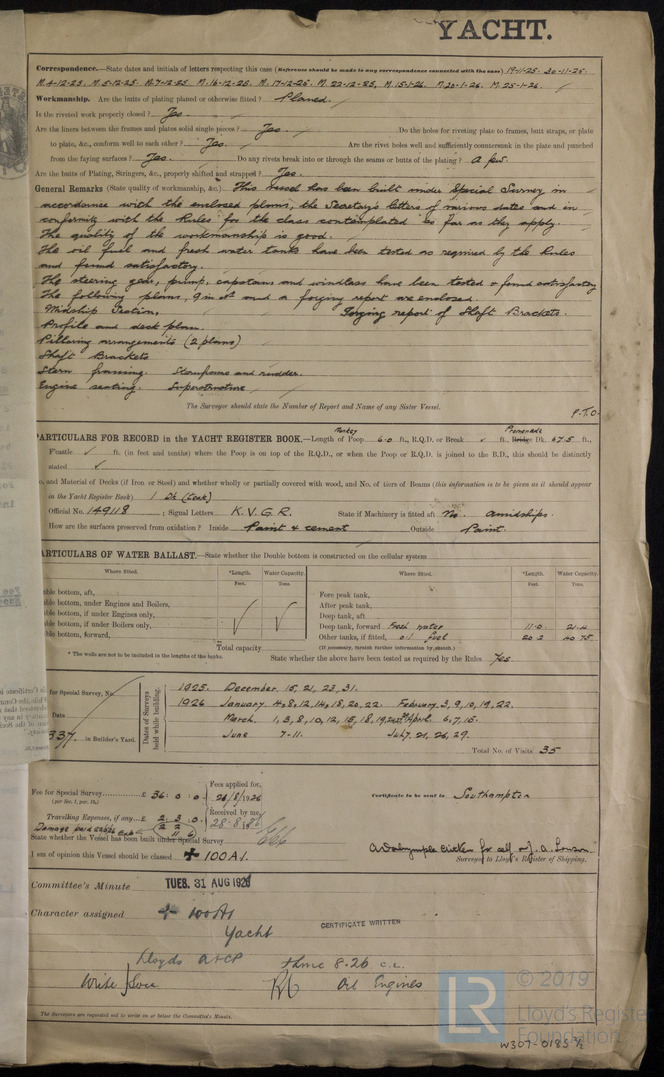 YACHT.
Correspondence.—State dates and initials of letters respecting this case (Reference should be made to any correspondence connected with the case) 19-11-25. 30-11-25.
M. 4-12-25. M. 5-12-25. M. 7-12-25. M. 16-12-25. M. 17-12-25. M. 22-12-25. M. 15-1-26. M. 20-1-26. M. 25-1-26.
Workmanship. Are the butts of plating planed or otherwise fitted? Planed.
Is the riveted work properly closed? Yes.
Are the liners between the frames and plates solid single pieces? Yes. Do the holes for riveting plate to frames, butt straps, or plate
to plate, &c., conform well to each other? Yes. Are the rivet holes well and sufficiently countersunk in the plate and punched
from the faying surfaces? Yes. Do any rivets break into or through the seams or butts of the plating? a few.
Are the butts of Plating, Stringers, &c., properly shifted and strapped? Yes.
General Remarks (State quality of workmanship, &c.) This vessel has been built under Special Survey in
accordance with the enclosed plans, the Secretary's letters of various dates and in
conformity with the Rules for the class contemplated so far as they apply.
The quality of the workmanship is good.
The oil fuel and fresh water tanks have been tested as required by the Rules
and found satisfactory.
The steering gear, pump, capstans and windlass have been tested & found satisfactory
The following plans, 9 in no and a forging report are enclosed
Midship Section, Forging report of Shaft Brackets.
Profile and deck plan.
Pillaring arrangements (2 plans)
Shaft Brackets
Stern framing. Sternframe and rudder.
Engine seating. Superstructure
The Surveyor should state the Number of Report and Name of any Sister Vessel.
P.T.O.
PARTICULARS FOR RECORD in the YACHT REGISTER BOOK.—Length of Poop 60 ft., R.Q.D. or Break ft., Bridge Dk. 67.5 ft.,
Promenade
F'castle ft. (in feet and tenths) where the Poop is on top of the R.Q.D., or when the Poop or R.Q.D. is joined to the B.D., this should be distinctly
stated
, and Material of Decks (if Iron or Steel) and whether wholly or partially covered with wood, and No. of tiers of Beams (this information is to be given as it should appear
in the Yacht Register Book) 1 Dk (teak)
Official No. 149118; Signal Letters K.V.G.R. State if Machinery is fitted aft No. amidships.
How are the surfaces preserved from oxidation? Inside Paint & cement Outside Paint.
ARTICULARS OF WATER BALLAST.—State whether the Double bottom is constructed on the cellular system
Where fitted. *Length. Water Capacity. Where fitted. *Length. Water Capacity.
Feet. Tons. Feet. Tons.
ble bottom, aft, Fore peak tank,
ble bottom, under Engines and Boilers, After peak tank,
ble bottom, if under Engines only, Deep tank, aft
ble bottom, if under Boilers only, Deep tank, forward Fresh water 11.0 21.4
ble bottom, forward, Other tanks, if fitted, oil fuel 20.2 40.75
Total capacity (If necessary, furnish further information by sketch.)
* The wells are not to be included in the lengths of the tanks. State whether the above have been tested as required by the Rules Yes
for Special Survey, No.
Date
337. in Builder's Yard.
Dates of Surveys held while building.
1925. December. 15, 21, 23, 31.
1926 January. 4, 8, 12, 14, 18, 20, 22. February. 3, 9, 10, 19, 22.
March. 1, 3, 8, 10, 12, 15, 18, 19, April. 6, 7, 15.
June 7-11. July. 21, 26, 29.
Total No. of Visits 35
Fee for Special Survey £ 36 : 0 : 0
(per Sec. 1, par. 1b.)
Fees applied for, 21/8/1926
Travelling Expenses, if any £ 2 . 3 . 0
Received by me, 28.8.26
Certificate to be sent to Southampton
State whether the Vessel has been built under Special Survey
I am of opinion this Vessel should be classed ✠ 100A1.
A Dalrymple for self &
Surveyor to Lloyd's Register of Shipping.
Committee's Minute TUES. 31 AUG 1926
Character assigned ✠ 100A1
Yacht
CERTIFICATE WRITTEN
Lloyds A&CP 8.26 c.l.
Write Oil Engines
The Surveyors are requested not to write on or below the Committee's Minute.
LR © 2019
Lloyd's Register
Foundation
W307-0185 1/2